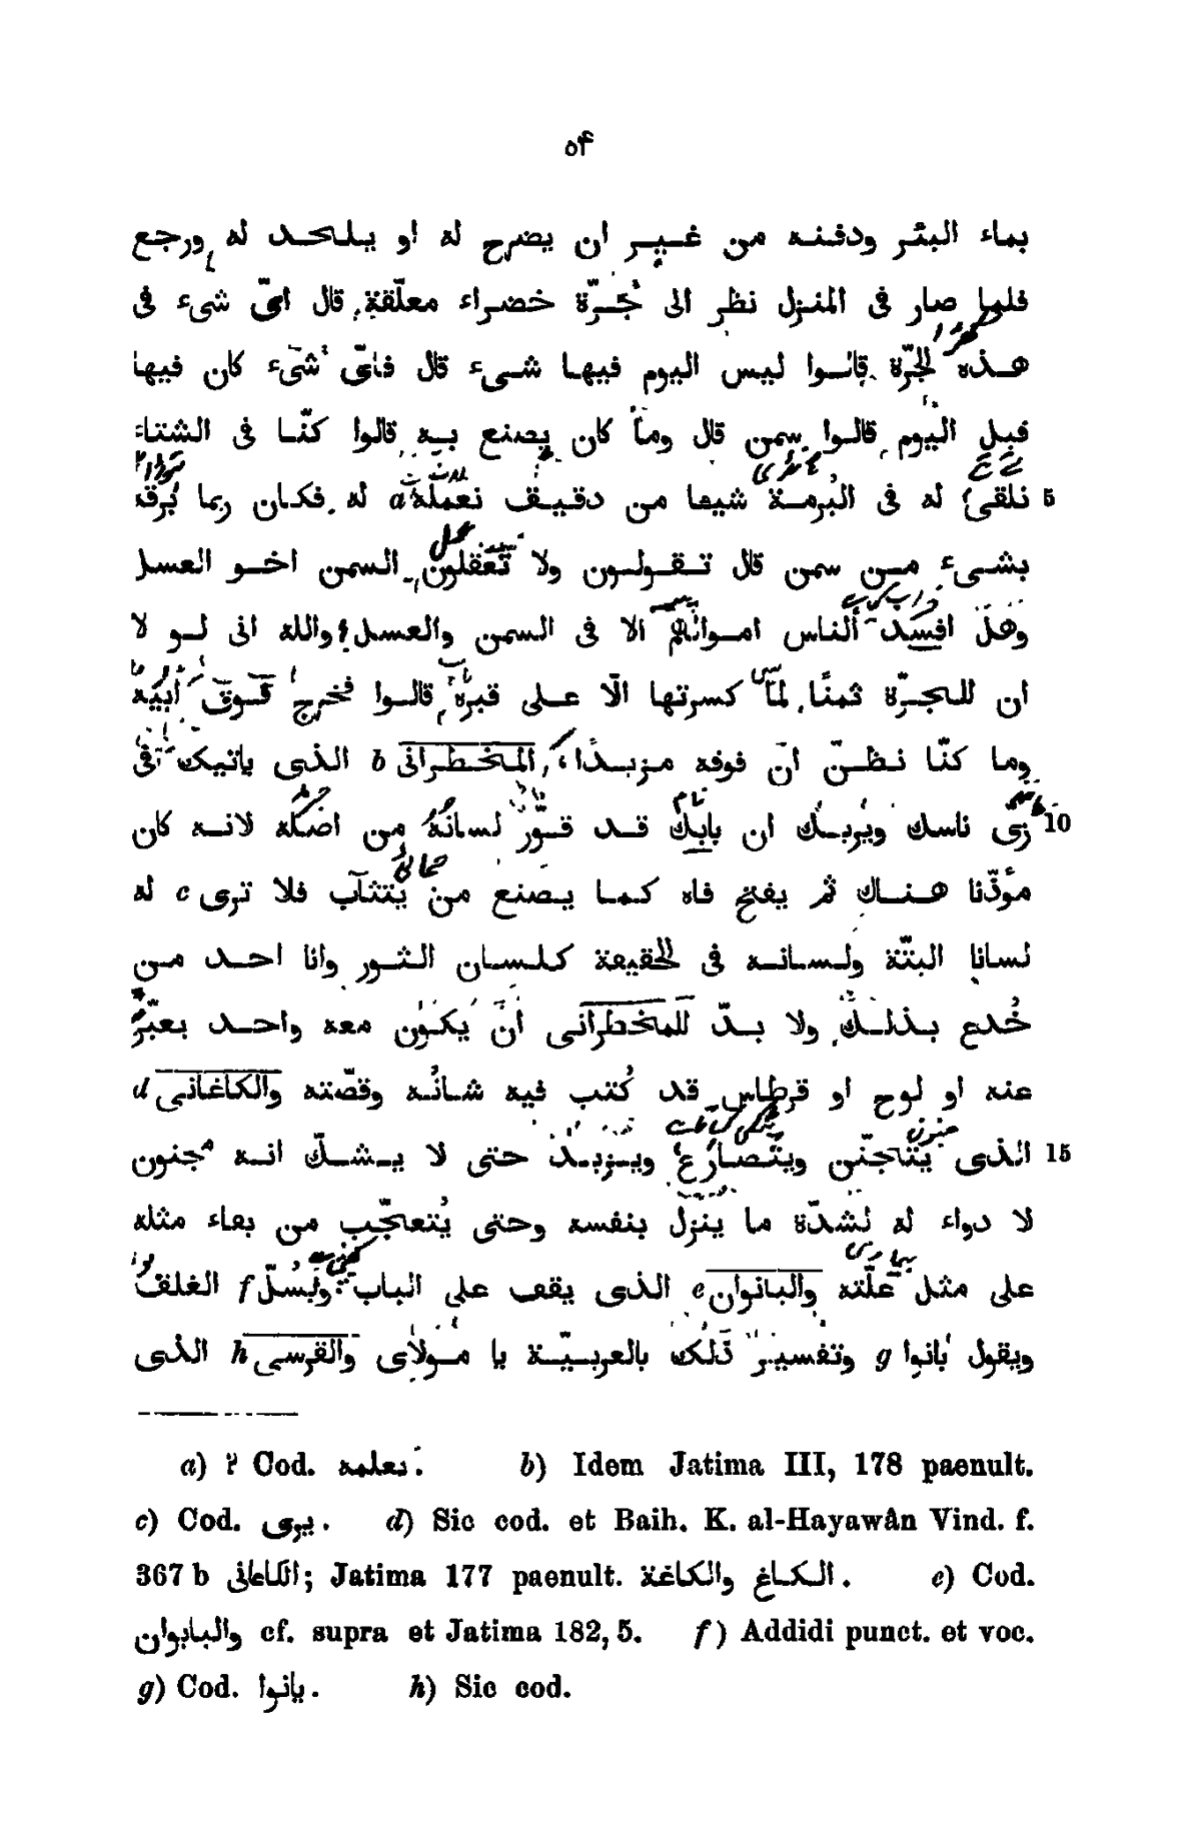 ۵۴
بماء البئر ودفنه من غير ان يضرح له او يلحد له ورجع
فلما صار فى المنزل نظر الى جَرّة خضراء معلّقة قال اىّ شىء فى
هذه الجرّة قالوا ليس اليوم فيها شىء قال فاىّ شىء كان فيها
قبل اليوم قالوا سمن قال وما كان يصنع به قالوا كنّا فى الشتاء
5 نلقى له فى البُرمة شيئا من دقيق نعمله a له فكان ربما بَرقه
بشىء من سمن قال تقولون ولا تفعلون السمن اخو العسل
وهل افسد الناس اموالهم الا فى السمن والعسل والله انى لو لا
ان للجرّة ثمنًا لما كسرتها الّا على قبره قالوا فخرج فوق ابيه
وما كنّا نظنّ انّ فوقه مزيدًا، المخطرانى b الذى ياتيك فى
10 زى ناسك ويُريك ان بابك قد قوّر لسانه من اصله لانه كان
مؤذّنا هناك ثم يفتح فاه كما يصنع من يتثآب فلا ترى c له
لسانا البتّة ولسانه فى الحقيقة كلسان الثور وانا احد من
خُدع بذلك ولا بدّ للمخطرانى ان يكون معه واحد يعبّر
عنه او لوح او قرطاس قد كُتب فيه شانُه وقصّته والكاغانى d
15 الذى يتجنّن ويتصارع ويزبد حتى لا يشكّ انه مجنون
لا دواء له لشدّة ما ينزل بنفسه وحتى يُتعجّب من بقاء مثله
على مثل علّته والبانوان e الذى يقف على الباب ويَسُلّ f الغلق
ويقول بانوا g وتفسير ذلك بالعربيّة يا مولاى والقرسى h الذى
a) ? Cod. نعلمه. b) Idem Jatima III, 178 paenult.
c) Cod. يرى. d) Sic cod. et Baih. K. al-Hayawân Vind. f.
367 b الكاعانى; Jatima 177 paenult. الكاغ والكاغة. e) Cod.
والبابوان cf. supra et Jatima 182, 5. f) Addidi punct. et voc.
g) Cod. يانوا. h) Sic cod.